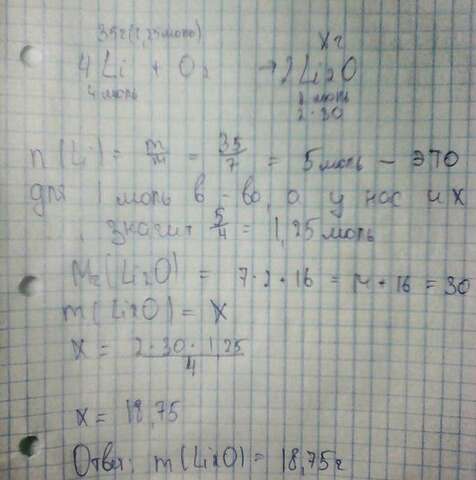 35г(1,25моль) xг
4Li + O2 → 2Li2O
4 моль 2 моль
2·30
n(Li) = m/M = 35/7 = 5моль – это
для 1 моль в-ва, а у нас их
, значит 5/4 = 1,25 моль
Mr(Li2O) = 7·2+16 = 14+16 = 30
m(Li2O) = X
x = 2·30·1,25/4
x = 18,75
Ответ: m(Li2O) = 18,75г